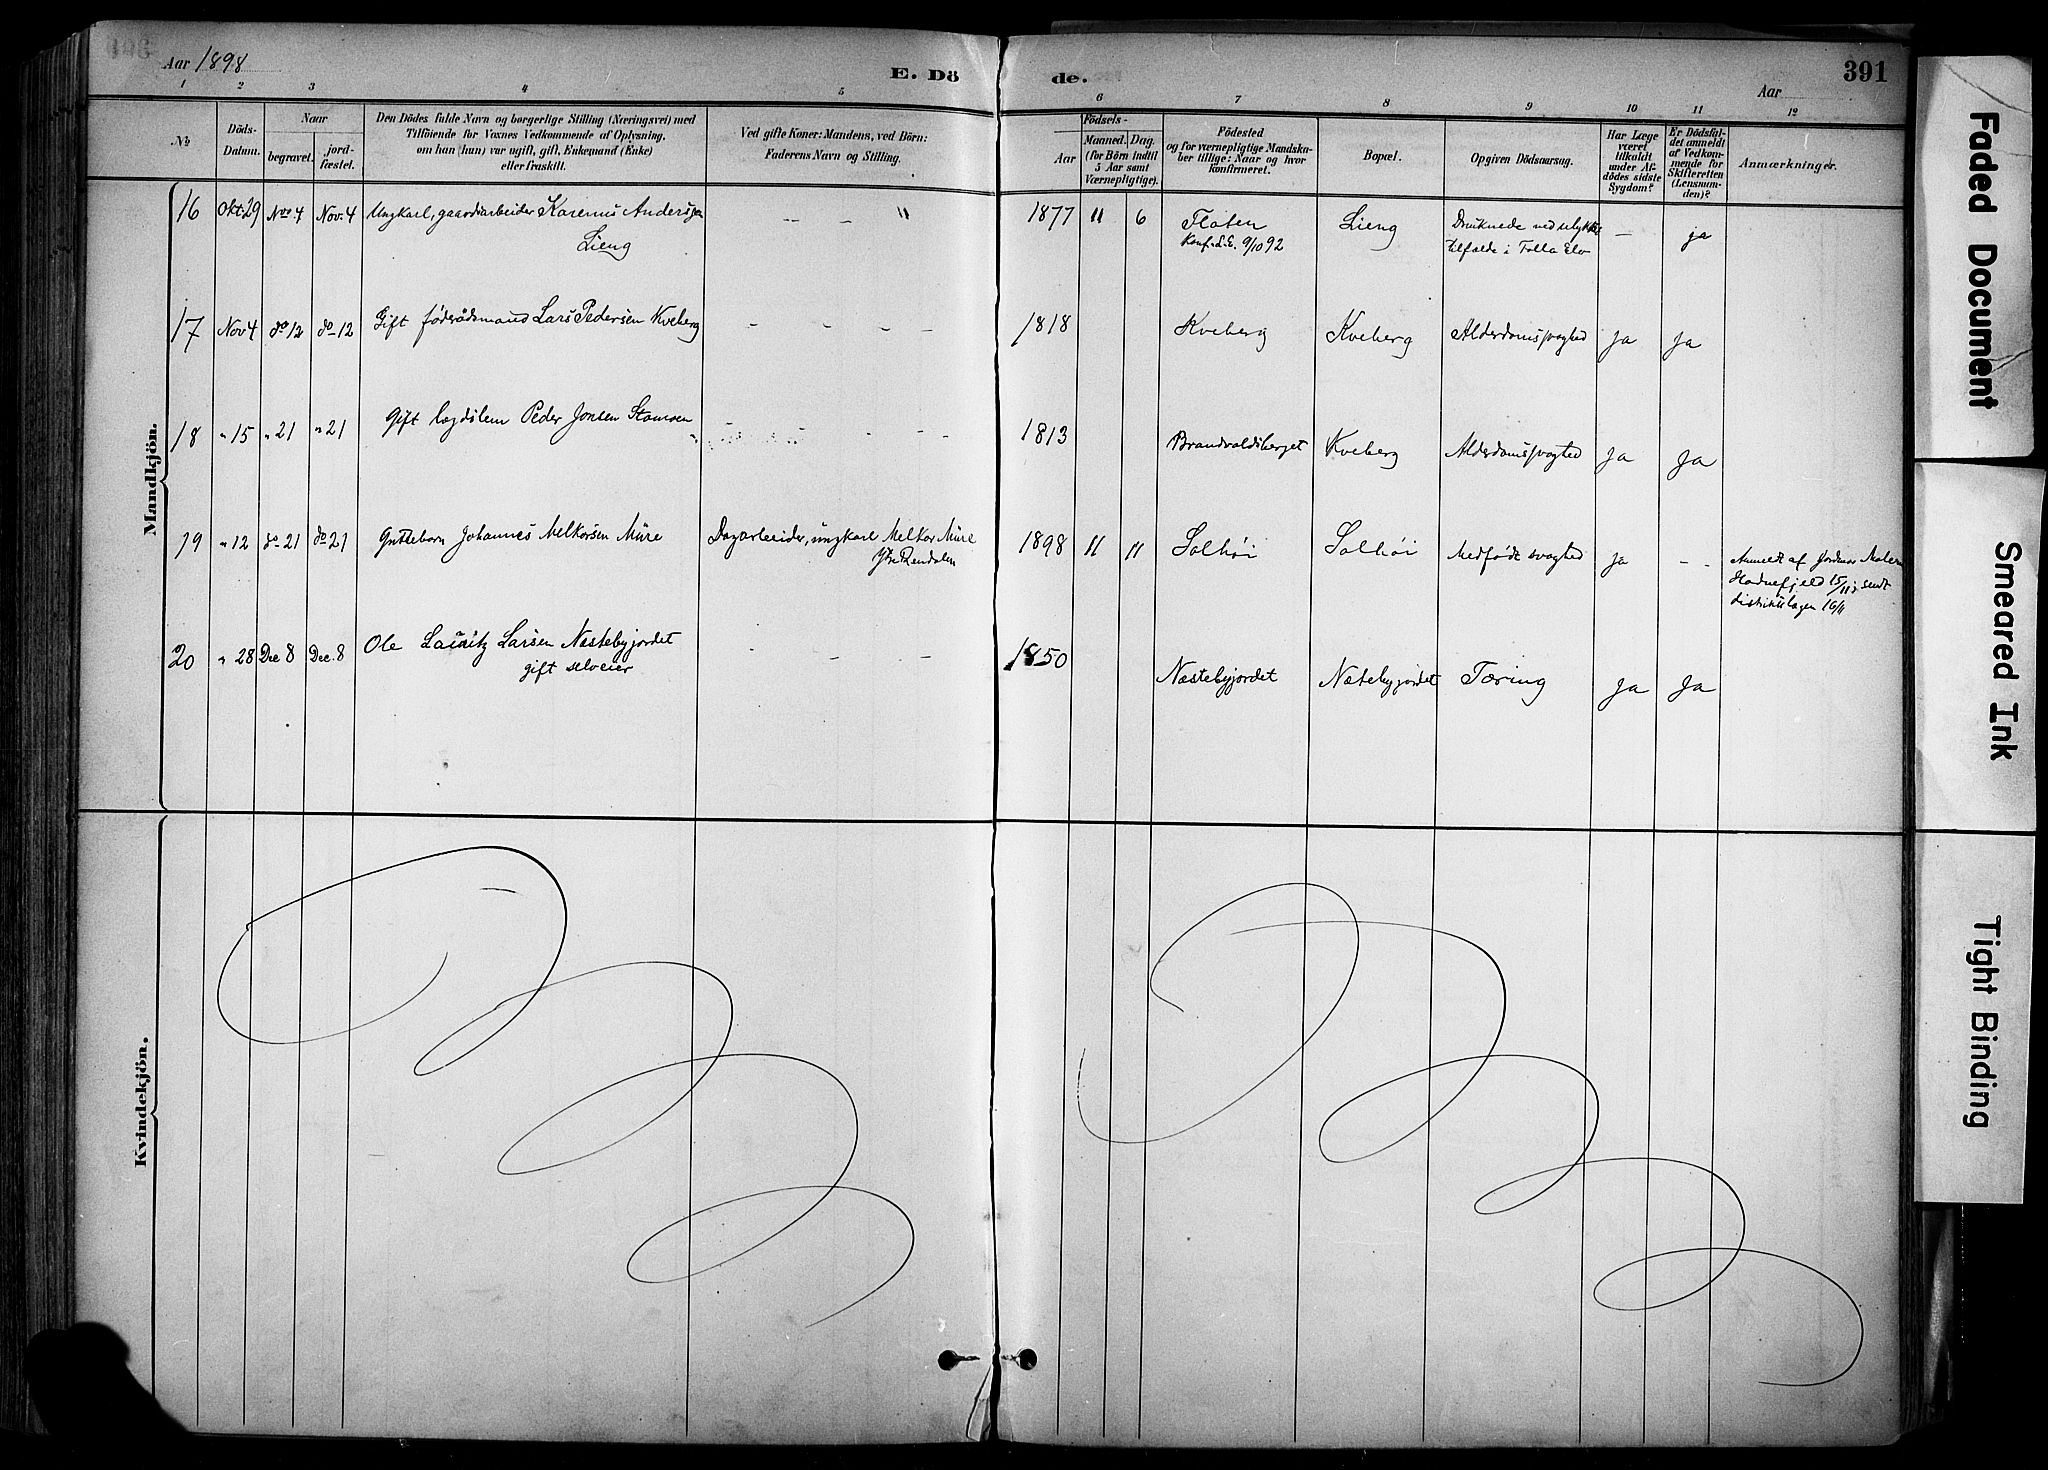 Aar 1898
E. Dö
de.
Aar
391
1 2 3 4 5 6 7 8 9 10 11 12
No
Döds-Datum.
Naar
begravet.
jord-fæstet.
Den Dödes fulde Navn og borgerlige Stilling (Næringsvei) med
Tilföiende for Voxnes Vedkommende af Oplysning,
om han (hun) var ugift, gift, Enkemand (Enke)
eller fraskilt.
Ved gifte Koner: Mandens, ved Börn:
Faderens Navn og Stilling.
Födsels-
Aar
Maaned. Dag.
(for Börn indtil
5 Aar samt
Værnepligtige).
Födested
og for værnepligtige Mandska-
ber tillige: Naar og hvor
konfirmeret.
Bopæl.
Opgiven Dödsaarsag.
Har Læge
været
tilkaldt
under Af-
dödes sidste
Sygdom?
Er Dödsfal-
det anmeldt
af Vedkom-
mende for
Skifteretten
(Lensman-
den)?
Anmærkninger.
Mandkjön.
16 Okt. 29 Nov 4 Nov. 4 Ungkarl, gaardarbeider Karenus Andersen - - " 1877 11 6 Floten Lieng Druknede ved ulykkes - ja
Lieng Konf. 9/10 92 tilfælde i Folla Elv
17 Nov 4 do 12 do 12 Gift föderådsmand Lars Pedersen Kveberg - - - - 1818 Kveberg Kveberg Alderdomssvaghed Ja Ja
18 " 15 " 21 " 21 Gift lægdslem Peder Jonsen Stamoen - - - - 1813 Brandvoldsberget Kveberg Alderdomssvaghed Ja Ja
19 " 12 do 21 do 21 Guttebarn Johannes Melkorsen Müre Dagarbeider, ungkarl Melkor Müre 1898 11 11 Solhöi Solhöi Medfödt svaghed Ja - - Anmeldt af Jordmor
Ytre Rendalen 15/11 sendt
distriktslægen 16/11
20 " 28 Dec 8 Dec. 8 Ole Lauritz Larsen Næstebyjordet - - - 1850 Næstebyjordet Næstebyjordet Tæring Ja Ja
gift selveier
Kvindekjön.
Faded Document
Smeared Ink
Tight Binding